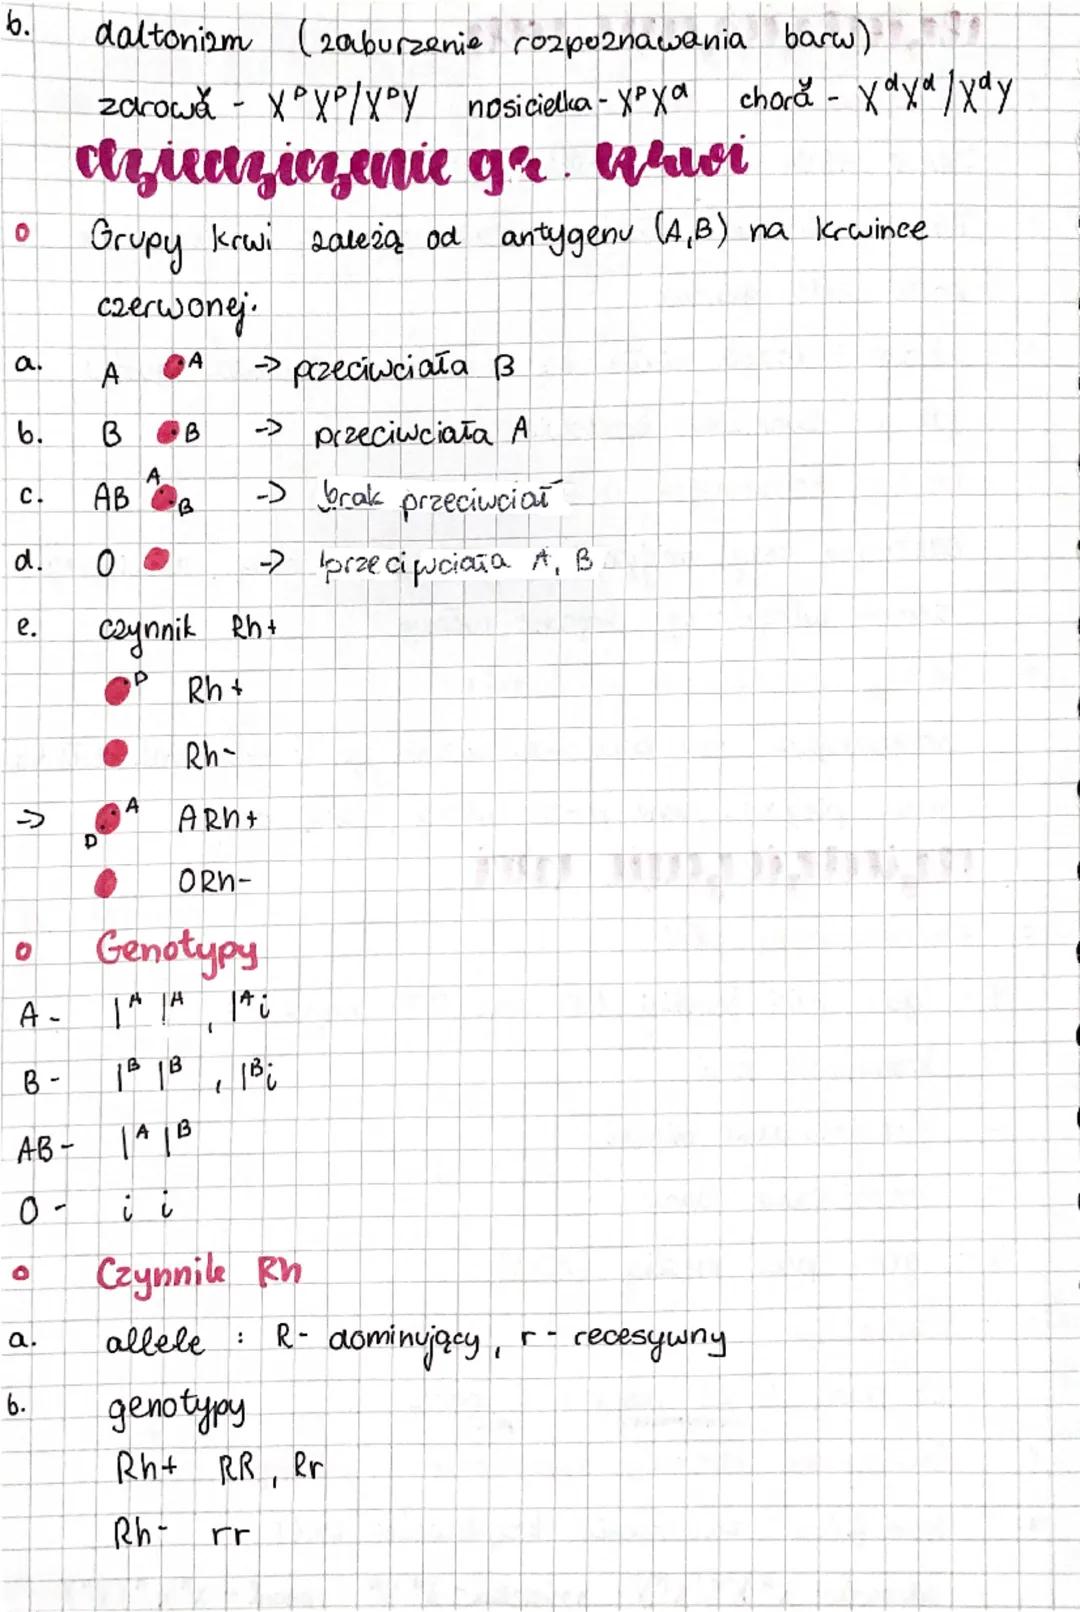 b. daltonizm (zaburzenie rozpoznawania barw)
zdrowy/a - XᴰXᴰ/XᴰY nosicielka - XᴰXᵈ chory/a - XᵈXᵈ/XᵈY
dziedziczenie gr. krwi
o Grupy krwi zależą od antygenu (A,B) na krwince
czerwonej.
a. A A -> przeciwciała B
b. B B -> przeciwciała A
c. AB A B -> brak przeciwciał
d. O -> przeciwciała A, B
e. czynnik Rh+
D Rh+
Rh-
-> D A ARh+
ORh-
o Genotypy
A - Iᴬ Iᴬ, Iᴬi
B - Iᴮ Iᴮ, Iᴮi
AB - Iᴬ Iᴮ
O - i i
o Czynnik Rh
a. allele : R - dominujący, r - recesywny
b. genotypy
Rh+ RR, Rr
Rh- rr